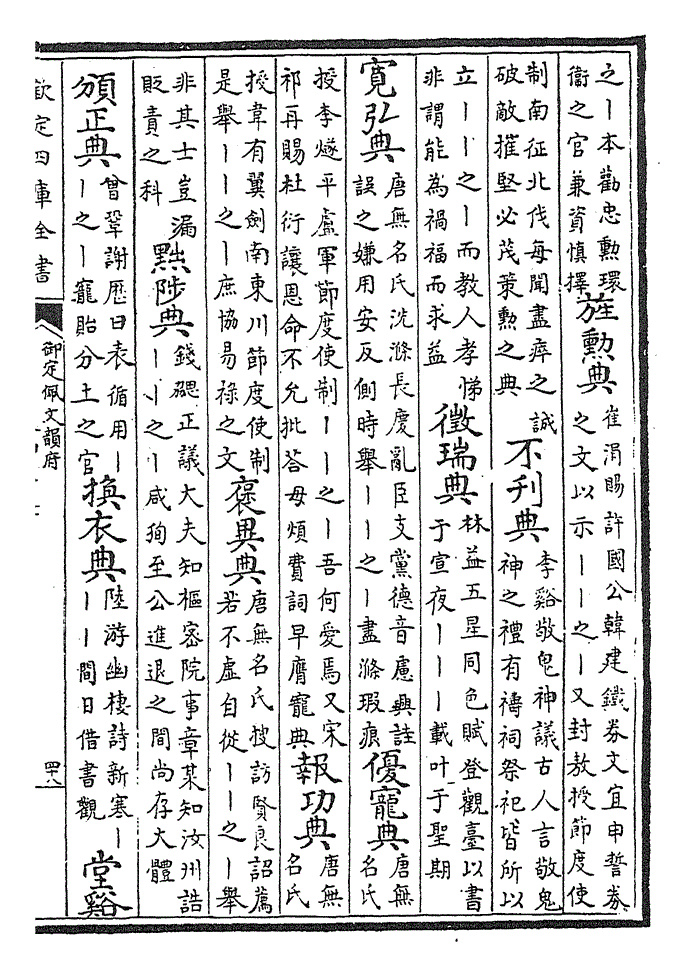 之丨本勸忠勲環
衞之官兼資慎擇
旌勲典
崔涓賜許國公韓建鐵券文宜申誓券
之文以示丨丨之丨又封敖授節度使
制南征北伐每聞盡瘁之誠
破敵摧堅必茂策勲之典
不刋典
李谿敬鬼神議古人言敬鬼
神之禮有禱祠祭祀皆所以
立丨丨之丨而教人孝悌
非謂能為禍福而求益
徵瑞典
林益五星同色賦登觀臺以書
于宣夜丨丨丨載叶于聖期
寛弘典
唐無名氏洗滌長慶亂臣支黨德音慮興詿
誤之嫌用安反側時舉丨丨之丨盡滌瑕痕
優寵典
唐無
名氏
授李燧平盧軍節度使制丨丨之丨吾何愛焉又宋
祁再賜杜衍讓恩命不允批荅毋煩費詞早膺寵典
報功典
唐無
名氏
授韋有翼劒南東川節度使制
是舉丨丨之丨庶協易祿之文
褒異典
唐無名氏搜訪賢良詔薦
若不虛自從丨丨之丨舉
非其士豈漏
貶責之科
黜陟典
錢勰正議大夫知樞宻院事章某知汝州誥
丨丨之丨咸殉至公進退之間尚存大體
頒正典
曾鞏謝歴日表循用丨
丨之丨寵貽分土之官
換衣典
陸游幽棲詩新寒丨
丨丨間日借書觀
堂谿
欽定四庫全書
御定佩文韻府
四十八